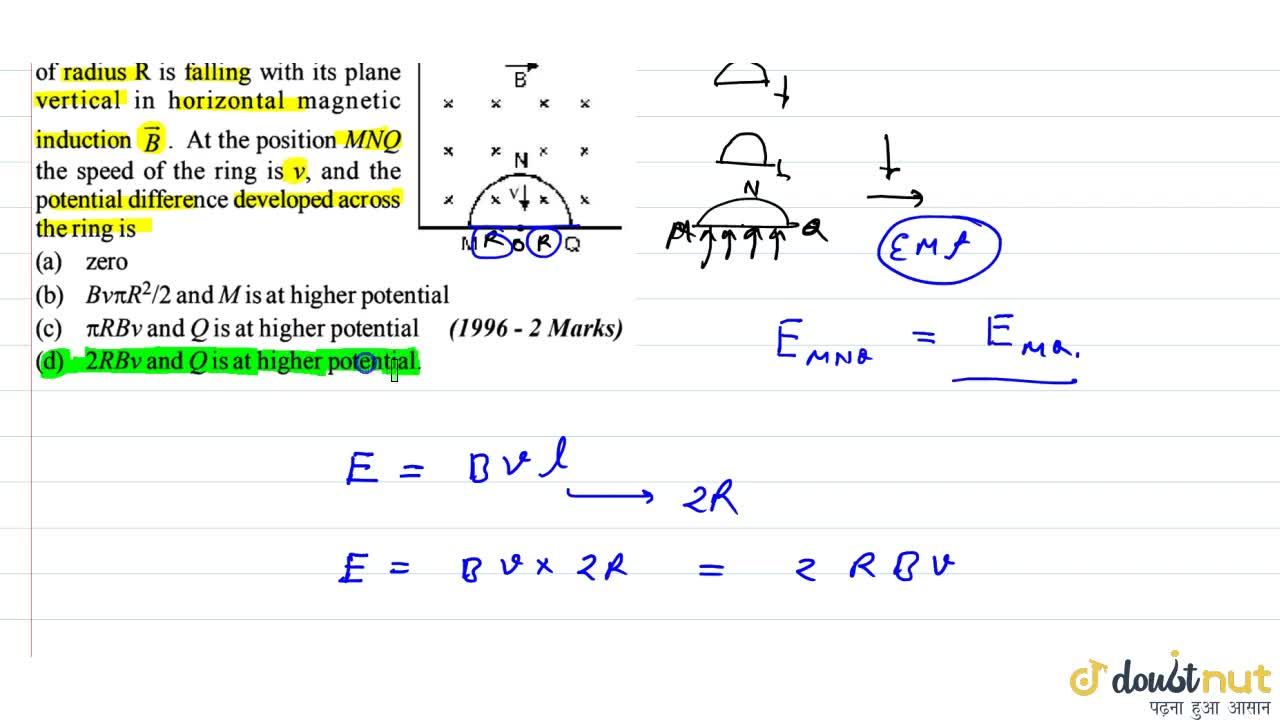 of radius R is falling with its plane
vertical in horizontal magnetic
induction B⃗. At the position MNQ
the speed of the ring is v, and the
potential difference developed across
the ring is
(a) zero
(b) BvπR²/2 and M is at higher potential
(c) πRBv and Q is at higher potential (1996 - 2 Marks)
(d) 2RBv and Q is at higher potential.
B
× × × ×
× × × ×
N
× × × ×
V
M R O R Q
N
M Q
EMF
E_MNQ = E_MQ.
E = B v l
2R
E = B v × 2R = 2 R B v
doubtnut
पढ़ना हुआ आसान